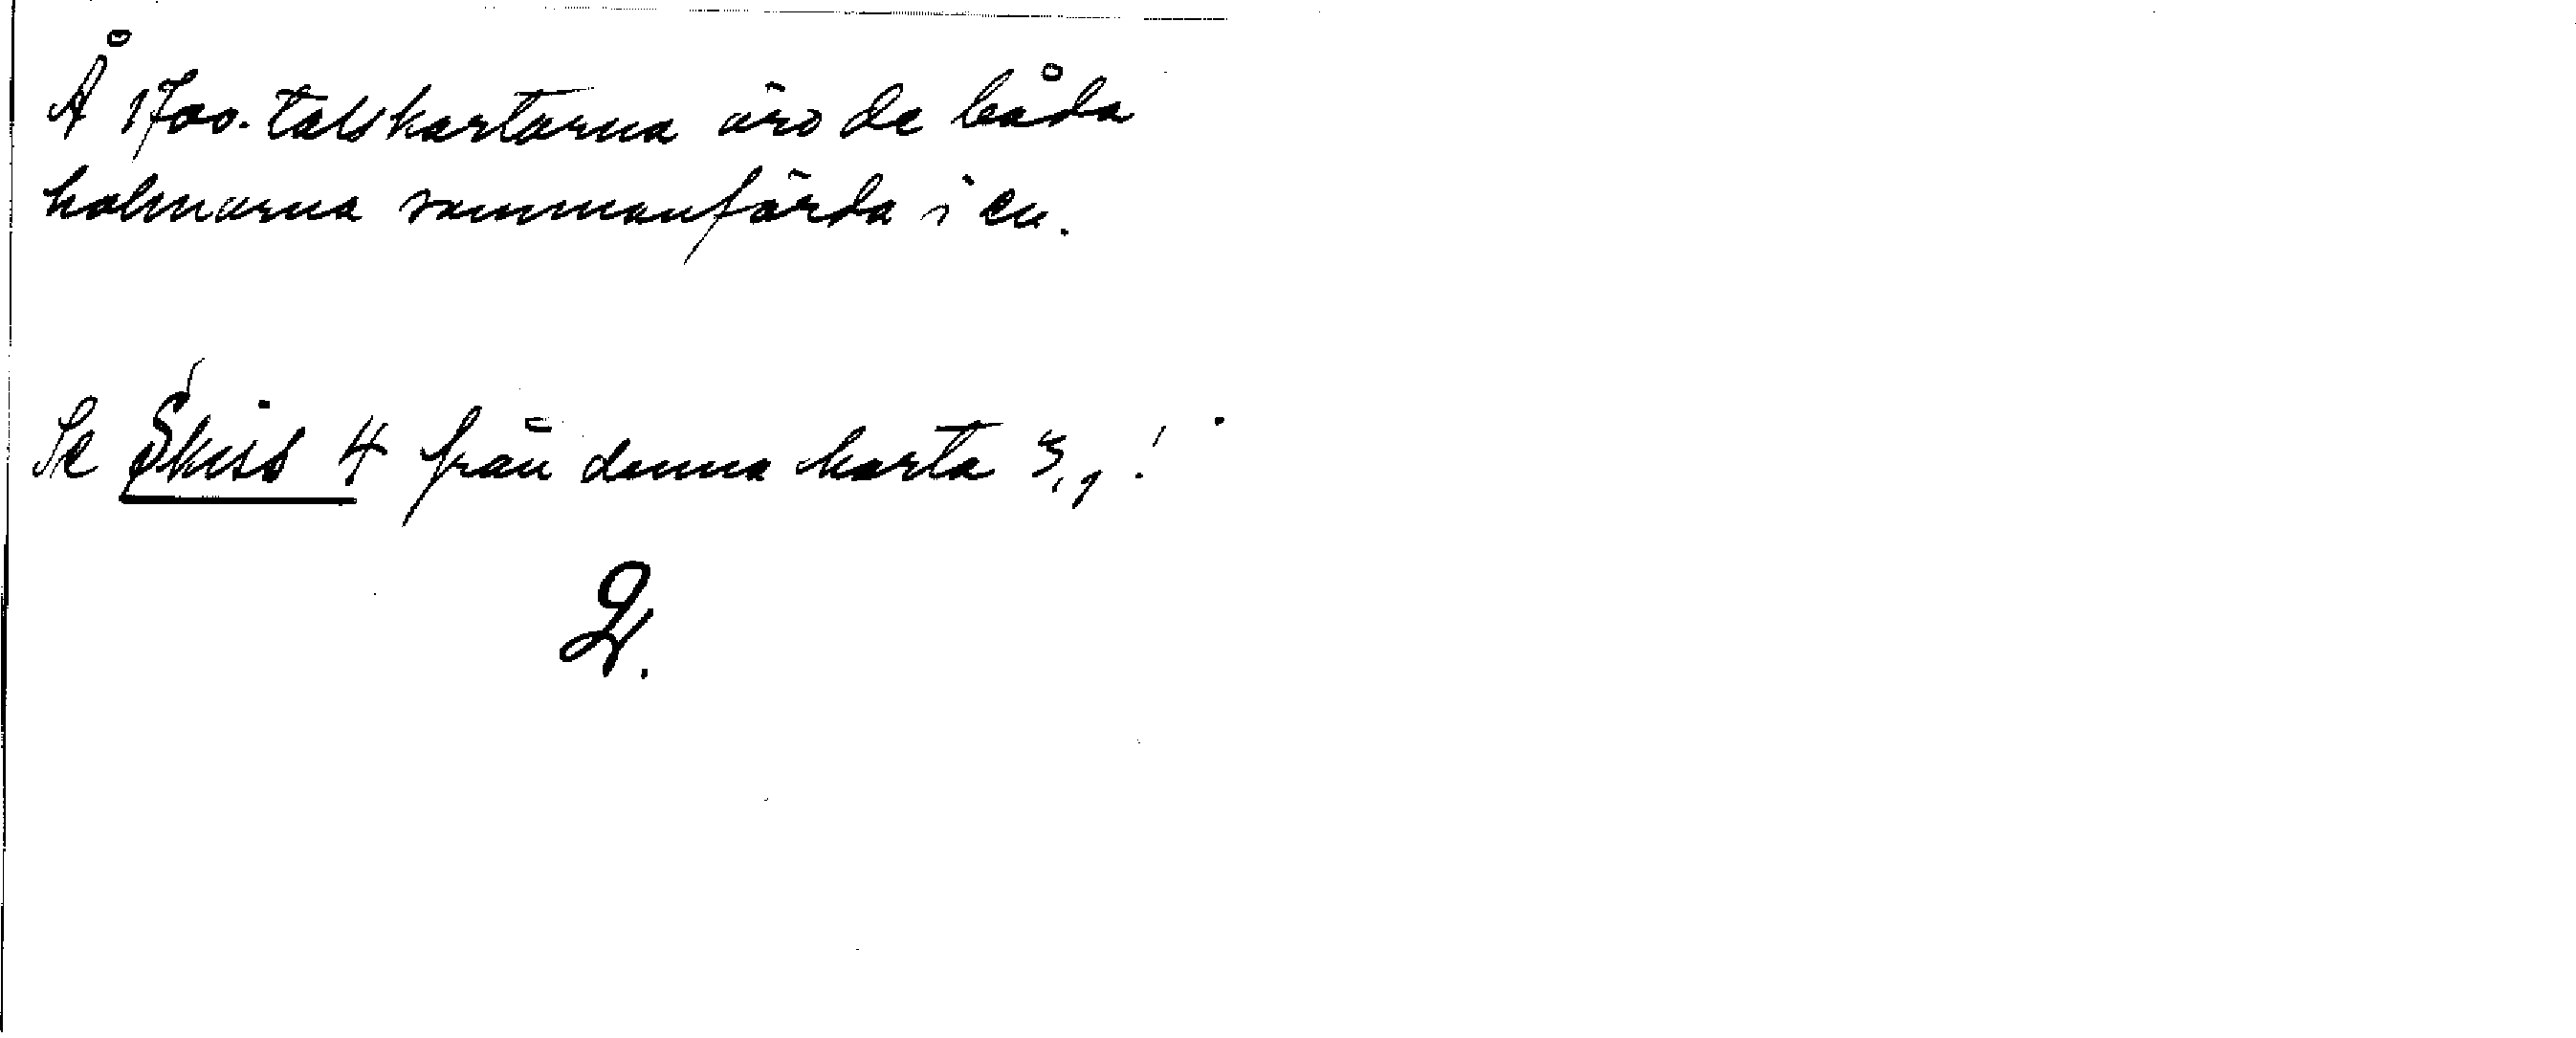 Å 1700-talskartorna äro de båda
holmarna sammanförda i en.
Se Skiss 4 från denna karta 3,1!
2.